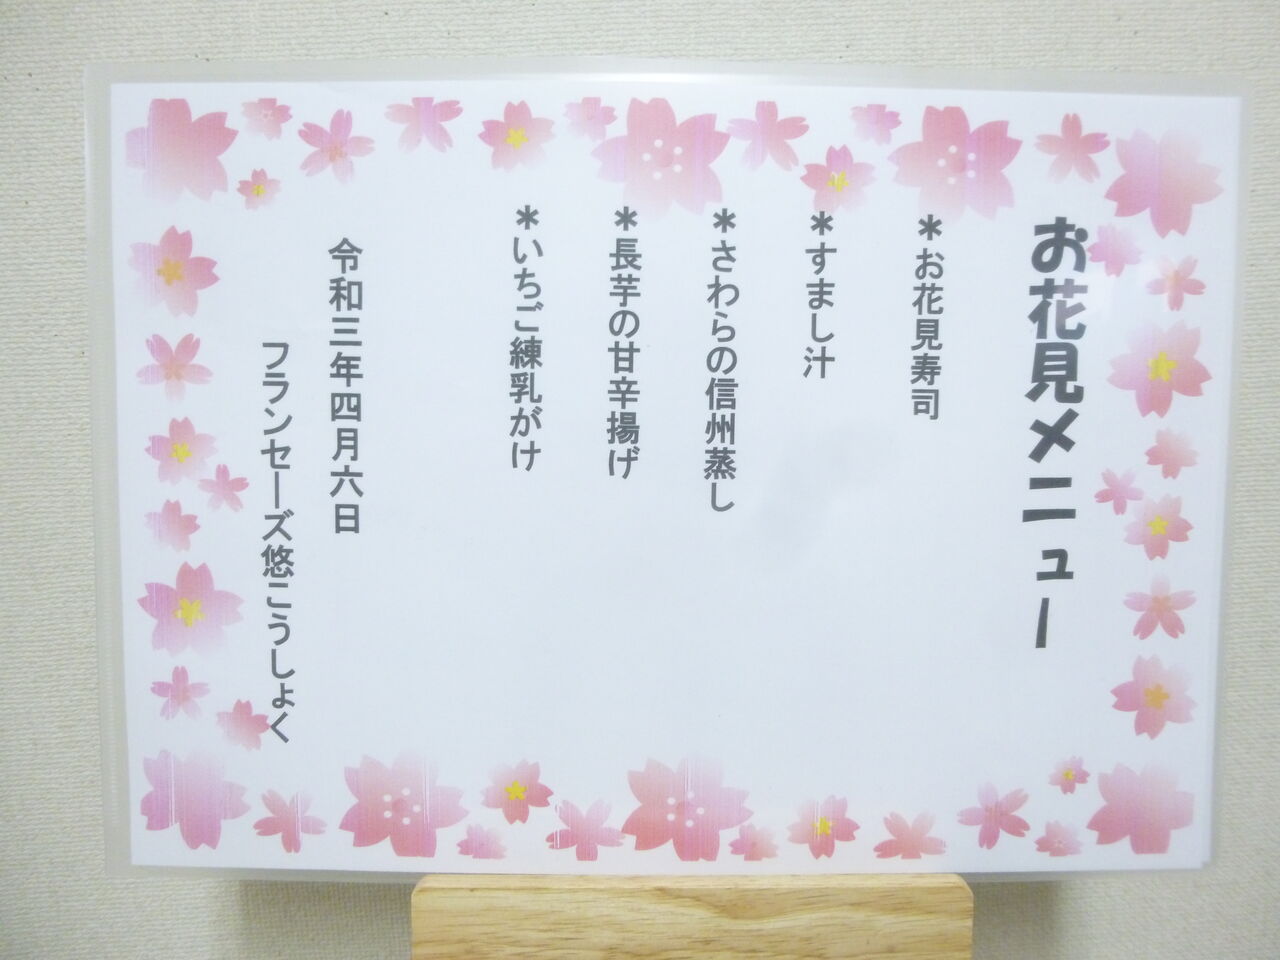 お花見メニュー
＊お花見寿司
＊すまし汁
＊さわらの信州蒸し
＊長芋の甘辛揚げ
＊いちご練乳がけ
令和三年四月六日
フランセーズ悠こうしょく